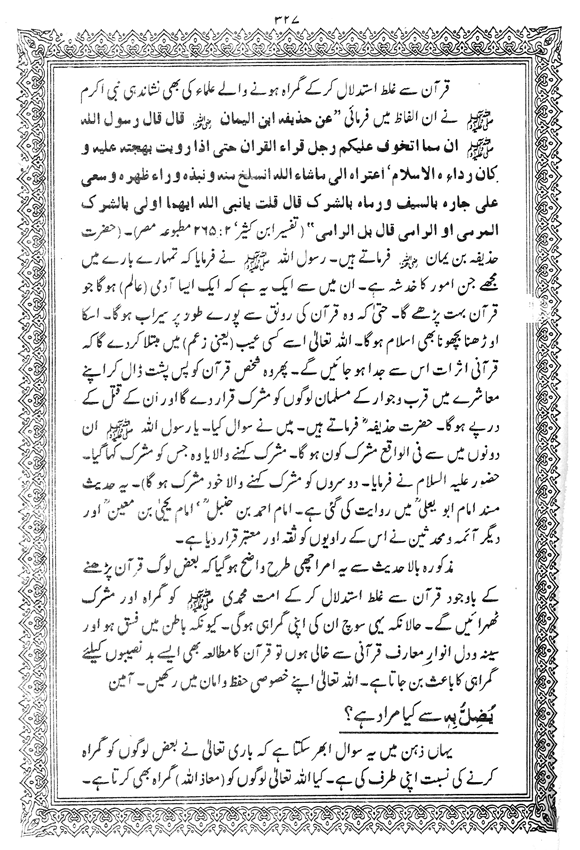 ۳۲۷
قرآن سے غلط استدلال کر کے گمراہ ہونے والے علماء کی بھی نشاندہی نبی اکرم
ﷺ نے ان الفاظ میں فرمائی ”عن حذیفہ ابن الیمان قال قال رسول اللہ
ﷺ ان مما اتخوف علیکم رجل قراء القران حتی اذا رویت بھجتہ علیہ و
کان رداءہ الاسلام‘ اعتراہ الی ماشاء اللہ انسلخ منہ ونبذہ وراء ظھرہ وسعی
علی جارہ بالسیف ورماہ بالشرک قال قلت یانبی اللہ ایھما اولی بالشرک
المرمی او الرامی قال بل الرامی“ (تفسیر ابن کثیر‘ ۲:۲۶۵ مطبوعہ مصر)۔ (حضرت
حذیفہ بن یمان فرماتے ہیں۔ رسول اللہ ﷺ نے فرمایا کہ تمہارے بارے میں
مجھے جن امور کا خدشہ ہے۔ ان میں سے ایک یہ ہے کہ ایک ایسا آدمی (عالم) ہو گا جو
قرآن بہت پڑھے گا۔ حتیٰ کہ وہ قرآن کی رونق سے پورے طور پر سیراب ہو گا۔ اسکا
اوڑھنا بچھونا بھی اسلام ہو گا۔ اللہ تعالیٰ اسے کسی عیب (یعنی زعم) میں مبتلا کر دے گا کہ
قرآنی اثرات اس سے جدا ہو جائیں گے۔ پھر وہ شخص قرآن کو پس پشت ڈال کر اپنے
معاشرے میں قرب و جوار کے مسلمان لوگوں کو مشرک قرار دے گا اور ان کے قتل کے
درپے ہو گا۔ حضرت حذیفہؓ فرماتے ہیں۔ میں نے سوال کیا۔ یا رسول اللہ ﷺ ان
دونوں میں سے فی الواقع مشرک کون ہو گا۔ مشرک کہنے والا یا وہ جس کو مشرک کہا گیا۔
حضور علیہ السلام نے فرمایا۔ دوسروں کو مشرک کہنے والا خود مشرک ہو گا)۔ یہ حدیث
مسند امام ابو یعلیٰؒ میں روایت کی گئی ہے۔ امام احمد بن حنبلؒ‘ امام یحییٰ بن معینؒ اور
دیگر آئمہ و محدثین نے اس کے راویوں کو ثقہ اور معتبر قرار دیا ہے۔
مذکورہ بالا حدیث سے یہ امر اچھی طرح واضح ہو گیا کہ بعض لوگ قرآن پڑھنے
کے باوجود قرآن سے غلط استدلال کر کے امت محمدی ﷺ کو گمراہ اور مشرک
ٹھہرائیں گے۔ حالانکہ یہی سوچ ان کی اپنی گمراہی ہو گی۔ کیونکہ باطن میں فسق ہو اور
سینہ و دل انوار معارف قرآنی سے خالی ہوں تو قرآن کا مطالعہ بھی ایسے بد نصیبوں کیلئے
گمراہی کا باعث بن جاتا ہے۔ اللہ تعالیٰ اپنے خصوصی حفظ و امان میں رکھیں۔ آمین
یُضِلُّ بِہٖ سے کیا مراد ہے؟
یہاں ذہن میں یہ سوال ابھر سکتا ہے کہ باری تعالیٰ نے بعض لوگوں کو گمراہ
کرنے کی نسبت اپنی طرف کی ہے۔ کیا اللہ تعالیٰ لوگوں کو (معاذ اللہ) گمراہ بھی کرتا ہے۔